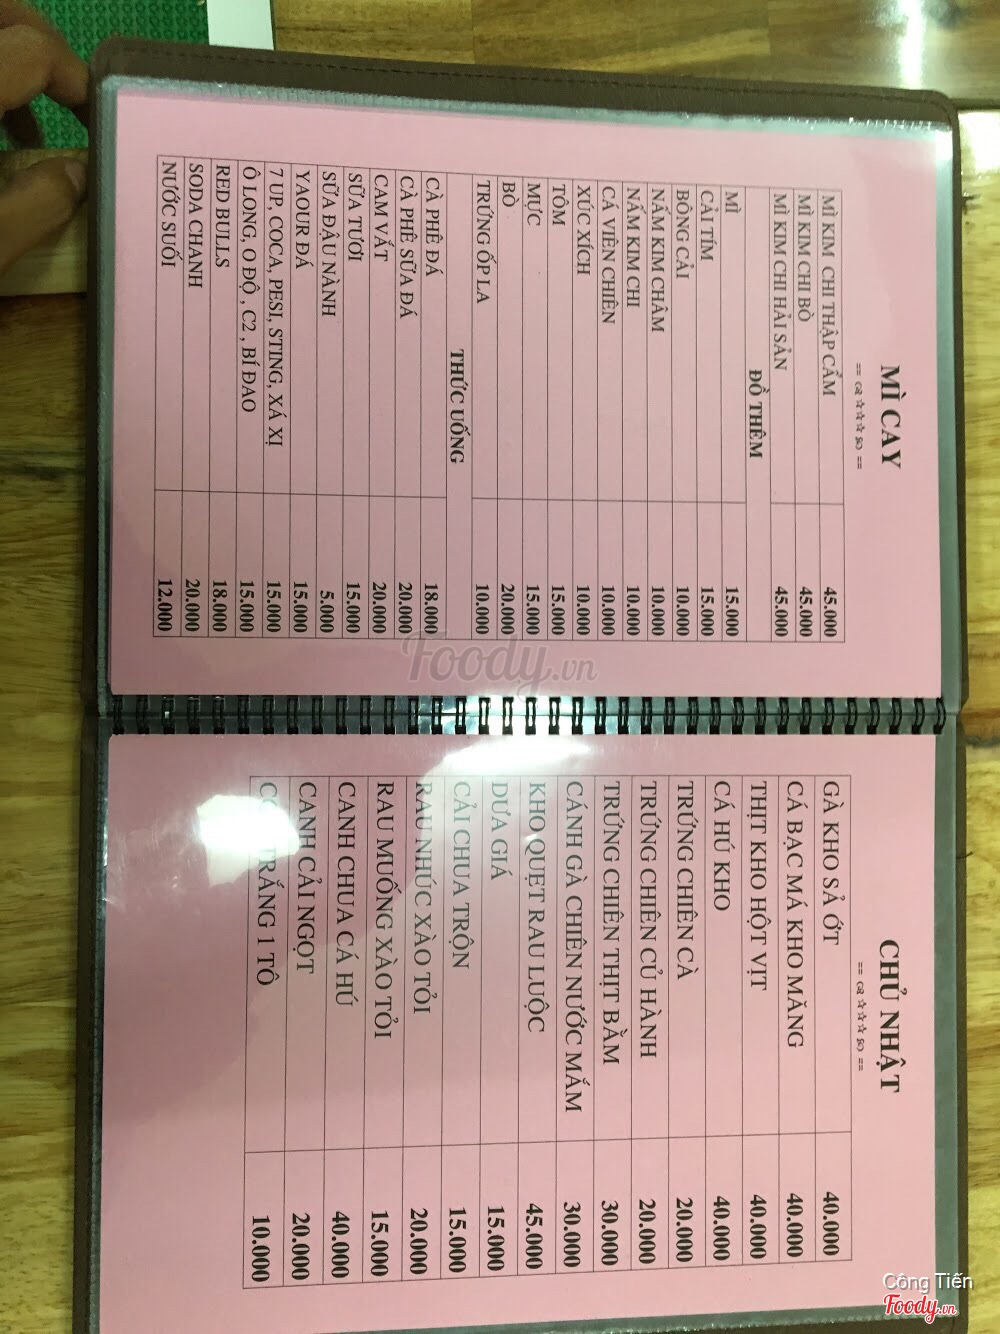 MÌ CAY
== ଓ ☆☆☆ ଓ ==
MÌ KIM CHI THẬP CẨM 45.000
MÌ KIM CHI BÒ 45.000
MÌ KIM CHI HẢI SẢN 45.000
ĐỒ THÊM
MÌ 15.000
CẢI TÍM 15.000
BÔNG CẢI 10.000
NẤM KIM CHÂM 10.000
NẤM KIM CHI 10.000
CÁ VIÊN CHIÊN 10.000
XÚC XÍCH 10.000
TÔM 15.000
MỰC 15.000
BÒ 20.000
TRỨNG ỐP LA 10.000
THỨC UỐNG
CÀ PHÊ ĐÁ 18.000
CÀ PHÊ SỮA ĐÁ 20.000
CAM VẮT 20.000
SỮA TƯƠI 15.000
SỮA ĐẬU NÀNH 5.000
YAOUR ĐÁ 15.000
7 UP, COCA, PESI, STING, XÁ XỊ 15.000
Ô LONG, O ĐỘ , C2 , BÍ ĐAO 15.000
RED BULLS 18.000
SODA CHANH 20.000
NƯỚC SUỐI 12.000
CHỦ NHẬT
== ଓ ☆☆☆ ଓ ==
GÀ KHO SẢ ỚT 40.000
CÁ BẠC MÁ KHO MĂNG 40.000
THỊT KHO HỘT VỊT 40.000
CÁ HÚ KHO 40.000
TRỨNG CHIÊN CÀ 20.000
TRỨNG CHIÊN CỦ HÀNH 20.000
TRỨNG CHIÊN THỊT BẰM 30.000
CÁNH GÀ CHIÊN NƯỚC MẮM 30.000
KHO QUẸT RAU LUỘC 45.000
DƯA GIÁ 15.000
CẢI CHUA TRỘN 15.000
RAU NHÚC XÀO TỎI 20.000
RAU MUỐNG XÀO TỎI 15.000
CANH CHUA CÁ HÚ 40.000
CANH CẢI NGỌT 20.000
TRẮNG 1 TÔ 10.000
Foody.vn
Công Tiến
Foody.vn